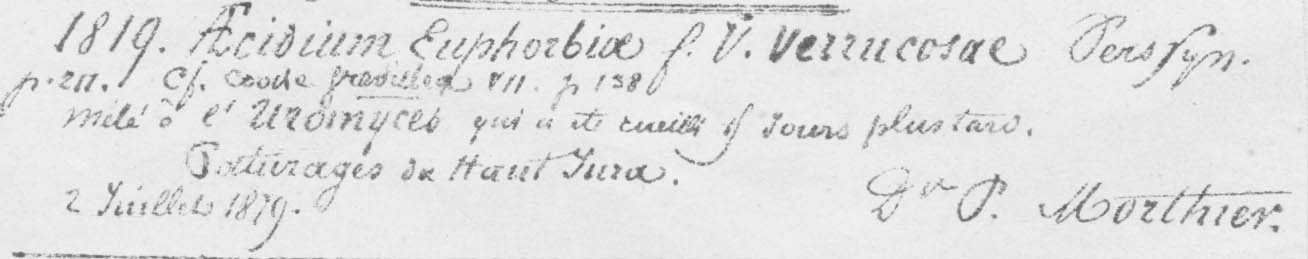 1819. Æcidium Euphorbiæ f. V. Verrucosae Pers Syn.
p. 211. Cf. Cooke Grevillea VII. p 138
mêlé à l'Uromyces qui a été cueilli jours plus tard.
Pâturages du Haut Jura.
2 Juillet 1879. Dr P. Morthier.